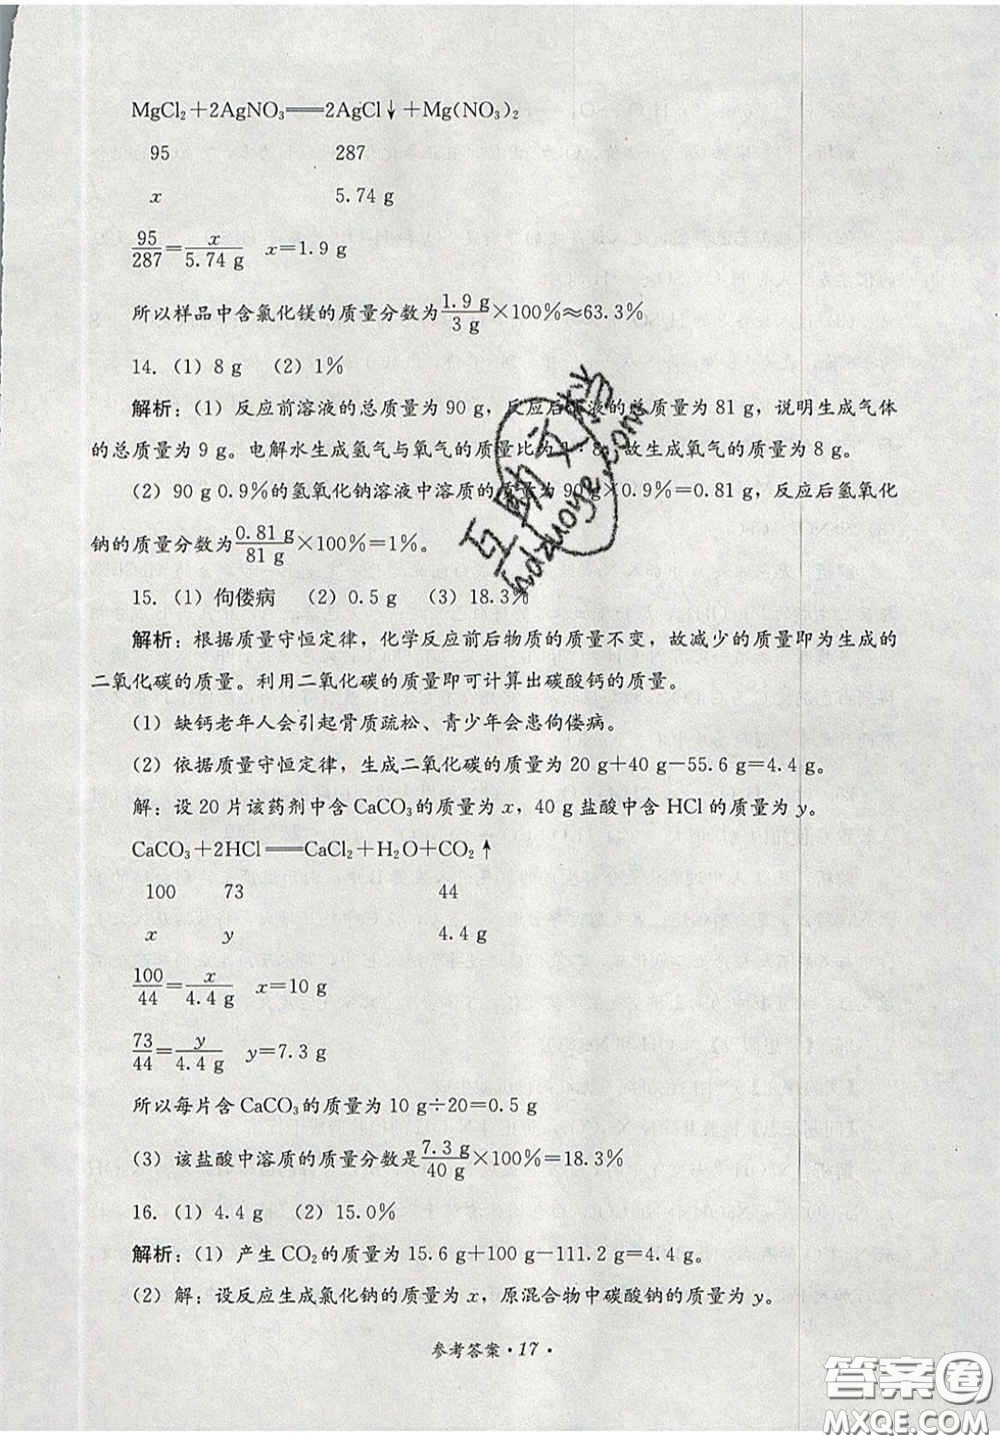 MgCl₂+2AgNO₃══2AgCl↓+Mg(NO₃)₂
95 287
x 5.74 g
95/287=x/5.74 g x=1.9 g
所以样品中含氯化镁的质量分数为1.9 g/3 g×100%≈63.3%
14. (1) 8 g (2) 1%
解析:(1) 反应前溶液的总质量为 90 g,反应后溶液的总质量为 81 g,说明生成气体
的总质量为 9 g。电解水生成氢气与氧气的质量比为 1:8,故生成氧气的质量为 8 g。
(2) 90 g 0.9%的氢氧化钠溶液中溶质的质量为 90 g×0.9%=0.81 g,反应后氢氧化
钠的质量分数为0.81 g/81 g×100%=1%。
15. (1) 佝偻病 (2) 0.5 g (3) 18.3%
解析:根据质量守恒定律,化学反应前后物质的质量不变,故减少的质量即为生成的
二氧化碳的质量。利用二氧化碳的质量即可计算出碳酸钙的质量。
(1) 缺钙老年人会引起骨质疏松、青少年会患佝偻病。
(2) 依据质量守恒定律,生成二氧化碳的质量为 20 g+40 g−55.6 g=4.4 g。
解:设 20 片该药剂中含 CaCO₃的质量为 x,40 g 盐酸中含 HCl 的质量为 y。
CaCO₃+2HCl══CaCl₂+H₂O+CO₂↑
100 73 44
x y 4.4 g
100/44=x/4.4 g x=10 g
73/44=y/4.4 g y=7.3 g
所以每片含 CaCO₃的质量为 10 g÷20=0.5 g
(3) 该盐酸中溶质的质量分数是7.3 g/40 g×100%=18.3%
16. (1) 4.4 g (2) 15.0%
解析:(1) 产生 CO₂的质量为 15.6 g+100 g−111.2 g=4.4 g。
(2) 解:设反应生成氯化钠的质量为 x,原混合物中碳酸钠的质量为 y。
参考答案·17·
互助文档
hdzuoye.com
答案圈
MXQE.COM